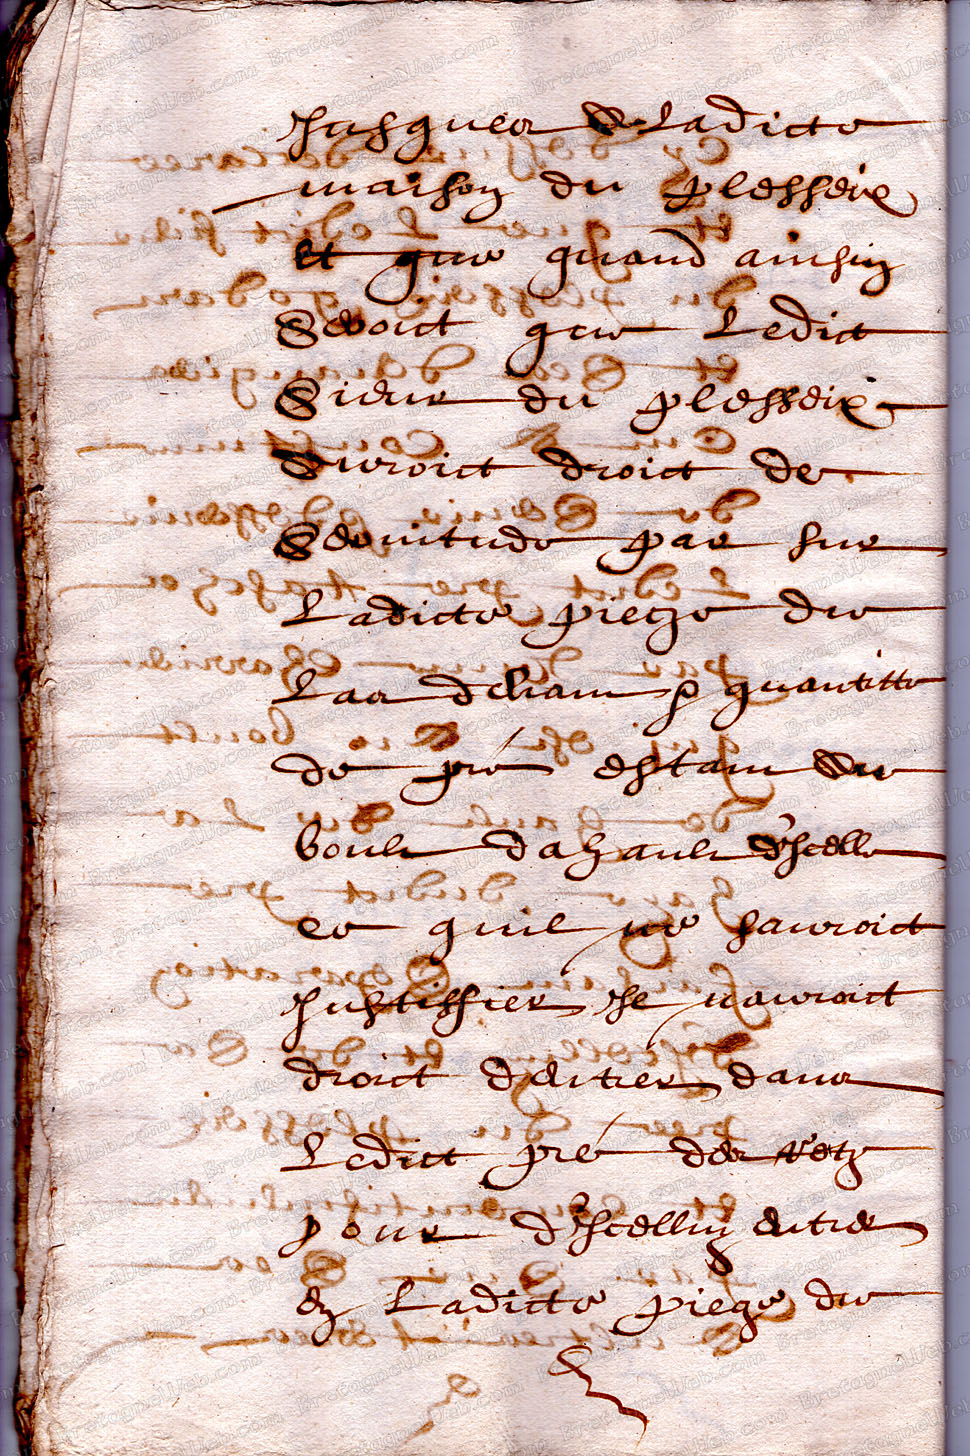 Jusques a Ladicte
maison du plesseix
et que quand ainsin
Seroict que Ledict
Sieur du plesseix
auroict droict de
Servitude par sur
Ladicte pietze du
Las deham p quantitte
de pré estam au
boult dahault dicelle
ce quil ne sauroict
Justiffier Il nauroict
droict dentrer dans
Ledict pré des
pour dicelluy entrer
en Ladicte piege du